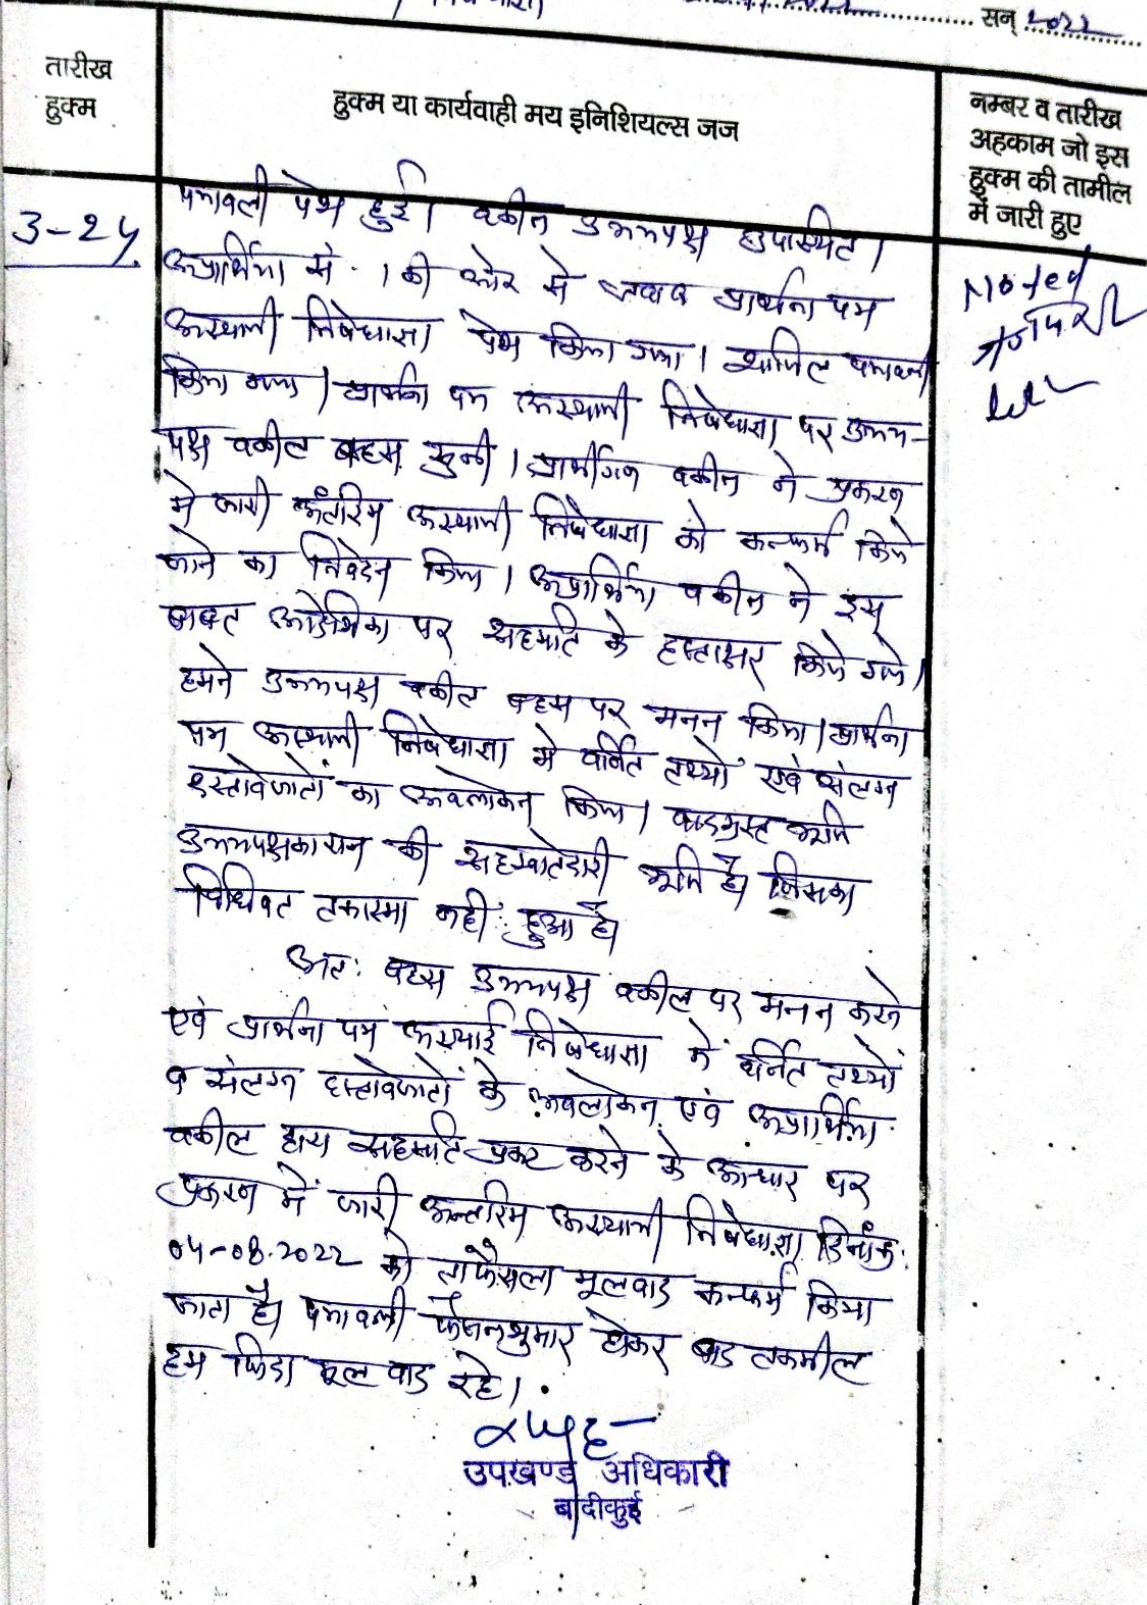 सन् 2022
तारीख
हुक्म
हुक्म या कार्यवाही मय इनिशियल्स जज
नम्बर व तारीख
अहकाम जो इस
हुक्म की तामील
में जारी हुए
3-24
पत्रावली पेश हुई। वकील उभयपक्ष उपस्थित।
अप्रार्थिया सं. 1 की ओर से जवाब प्रार्थना पत्र
अस्थायी निषेधाज्ञा पेश किया गया। शामिल पत्रावली
किया गया। प्रार्थना पत्र अस्थायी निषेधाज्ञा पर उभय-
पक्ष वकील बहस सुनी। प्रार्थीगण वकील ने प्रकरण
मे जारी अंतरिम अस्थायी निषेधाज्ञा को कन्फर्म किये
जाने का निवेदन किया। अप्रार्थिया वकील ने इस
बाबत आदेशिका पर सहमति के हस्ताक्षर किये गये।
हमने उभयपक्ष वकील बहस पर मनन किया। प्रार्थना
पत्र अस्थायी निषेधाज्ञा मे वर्णित तथ्यों एवं संलग्न
दस्तावेजातों का अवलोकन किया। वादग्रस्त भूमि
उभयपक्षकारान की सहखातेदारी भूमि है। जिसका
विधिवत तकासमा नहीं हुआ है।
अत: बहस उभयपक्ष वकील पर मनन करने
एवं प्रार्थना पत्र अस्थाई निषेधाज्ञा में वर्णित तथ्यों
व संलग्न दस्तावेजातों के अवलोकन एवं अप्रार्थिया
वकील द्वारा सहमति प्रकट करने के आधार पर
प्रकरण में जारी अन्तरिम अस्थायी निषेधाज्ञा दिनांक
04-08-2022 को ताफैसला मूलवाद कन्फर्म किया
जाता है। पत्रावली फैसलशुमार होकर बाद तकमील
हम फिदा मूल वाद रहे।
उपखण्ड अधिकारी
बांदीकुई
Noted